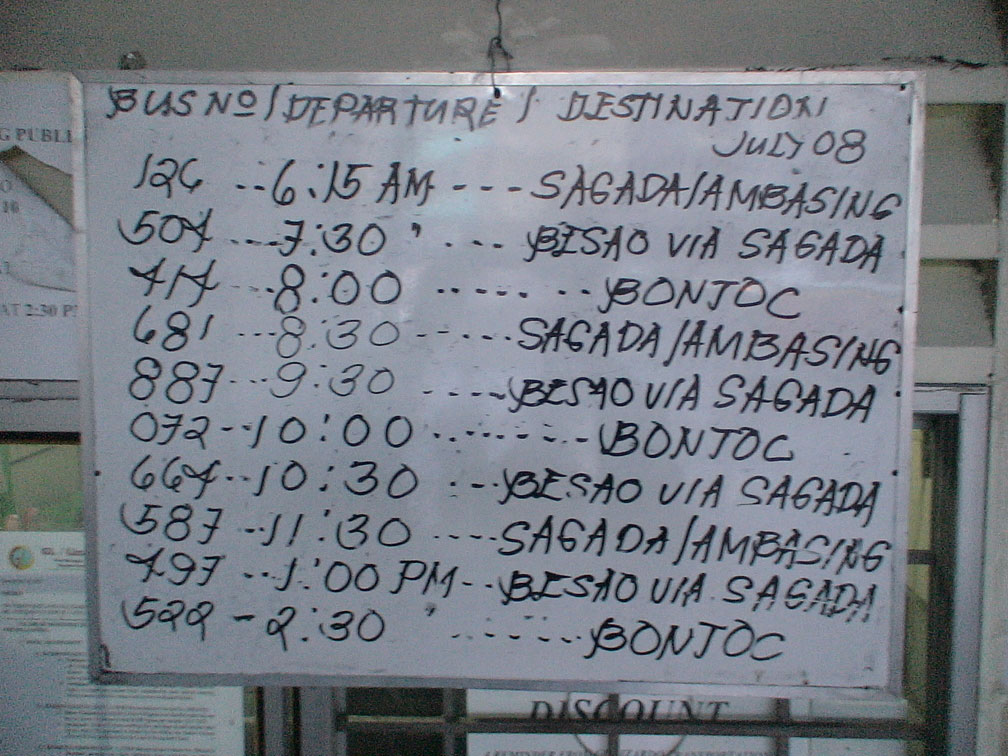 BUS Nº / DEPARTURE / DESTINATION
JULY 08
126 --6:15 AM --- SAGADA/AMBASING
504 ---7:30 " --- BESAO VIA SAGADA
414 ---8:00 ------- BONTOC
681 ---8:30 ------ SAGADA/AMBASING
887 ---9:30 ----- BESAO VIA SAGADA
072 --10:00 --------- BONTOC
664 --10:30 --- BESAO VIA SAGADA
587 --11:30 ---- SAGADA/AMBASING
497 --1:00 PM -- BESAO VIA SAGADA
522 - 2:30 " ------- BONTOC
G PUBLI
10
AT 2:30 P
DISCOUNT